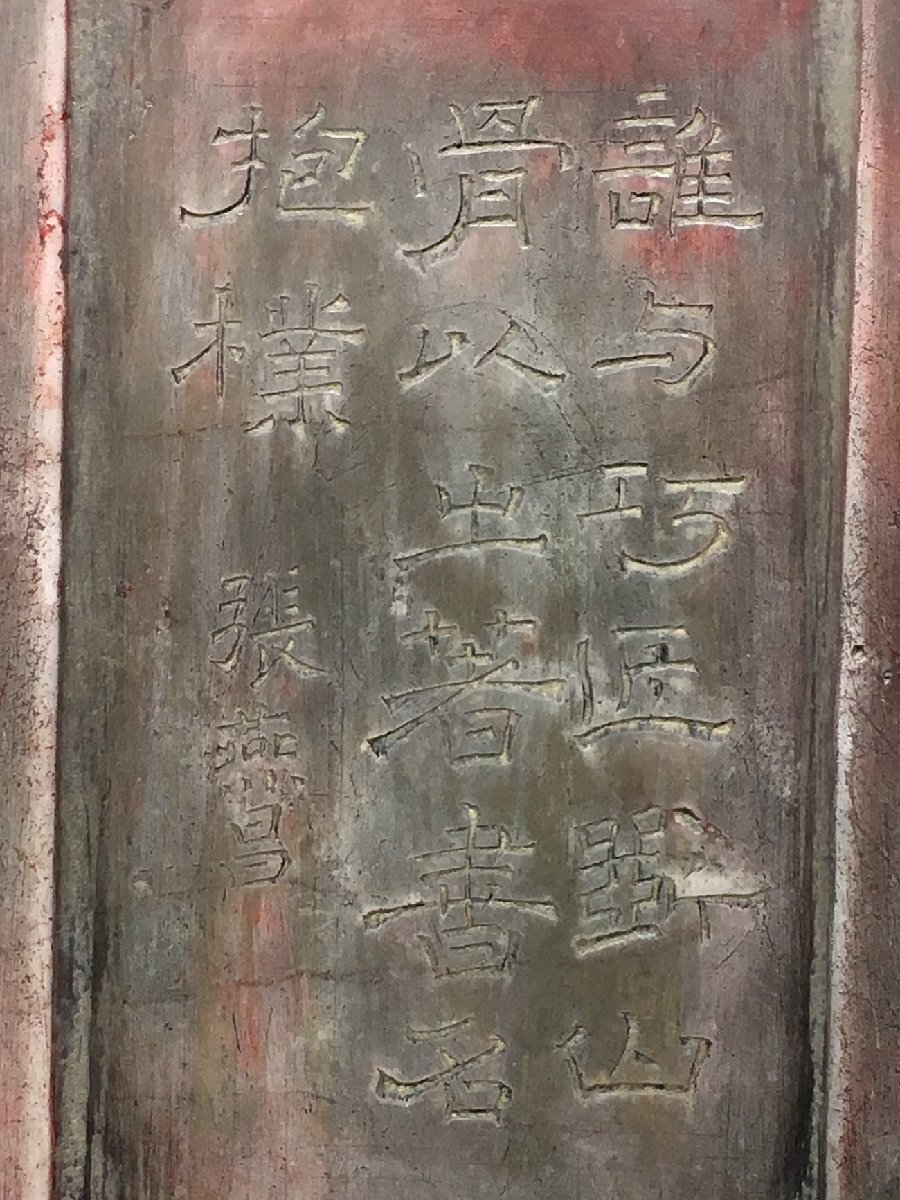 誰与巧匠斲山
骨以之著書名
抱樸 張燕昌